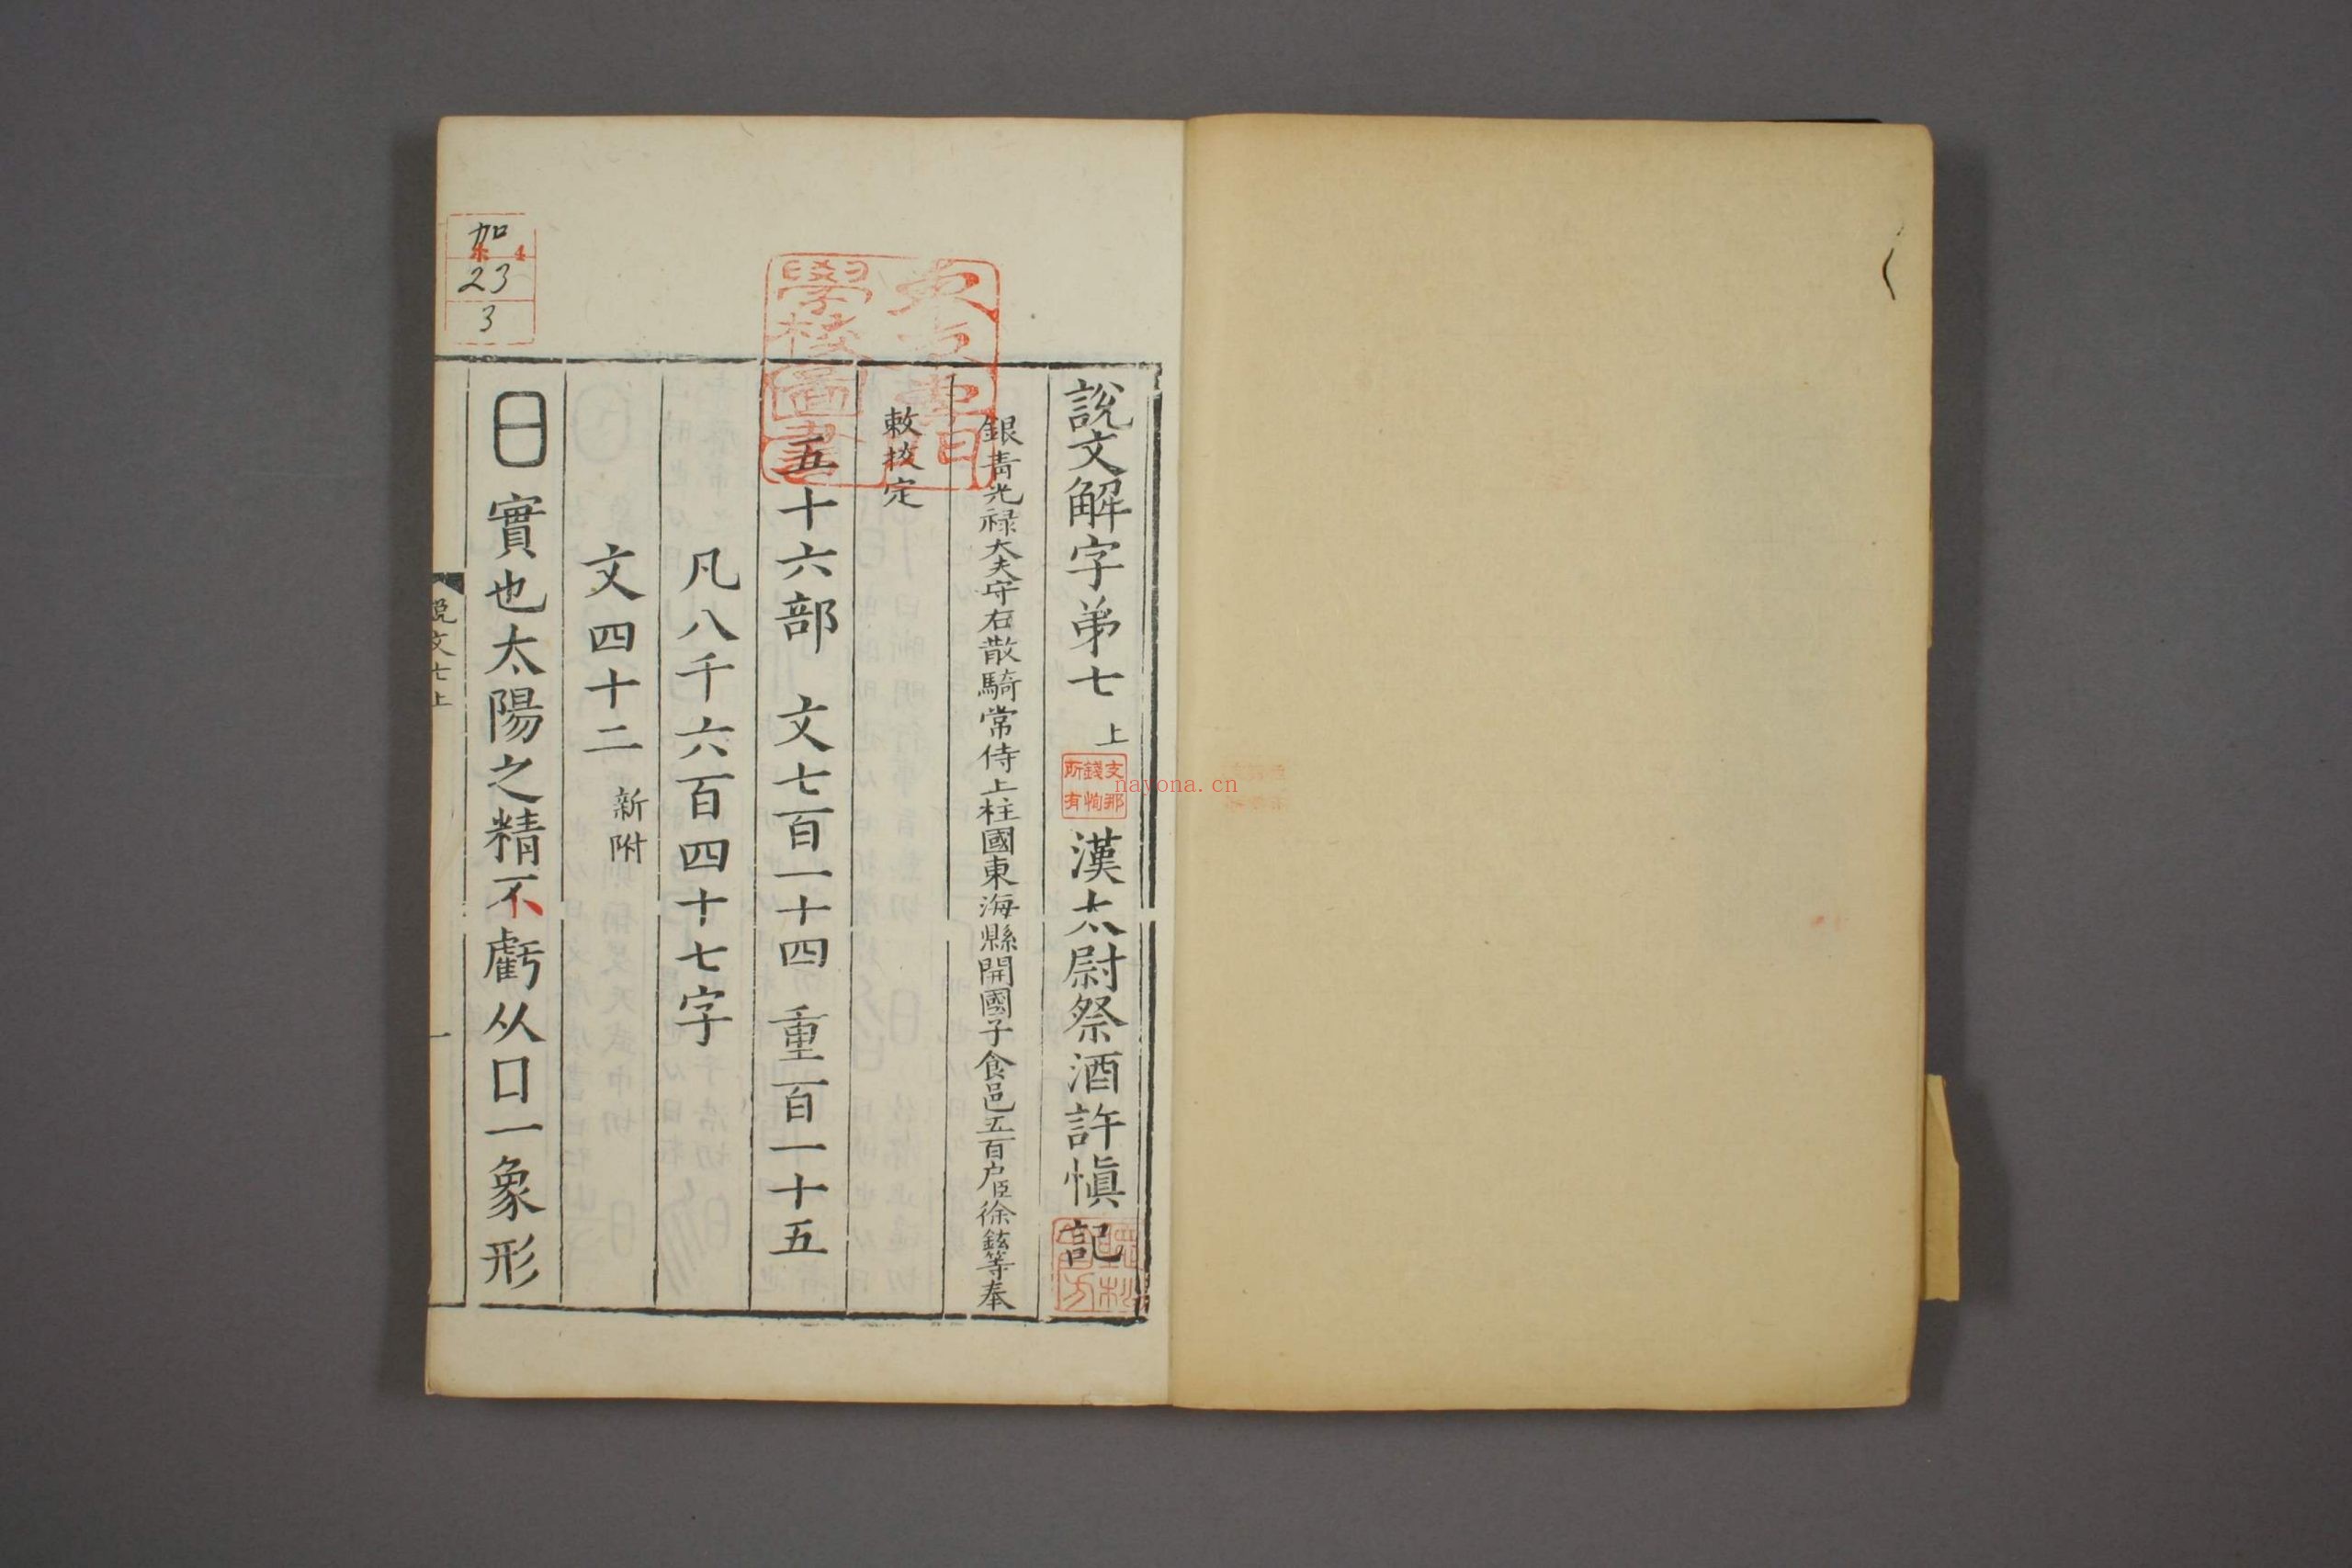 說文解字弟七 上 漢太尉祭酒許愼記
銀青光禄大夫守右散騎常侍上柱國東海縣開國子食邑五百户臣徐鉉等奉
敕挍定
五十六部 文七百一十四 重百一十五
凡八千六百四十七字
文四十二 新附
日 實也太陽之精不虧从口一象形
說文七上
一
學校圖書
支那
錢恂
所有
加
23
3
nayona.cn